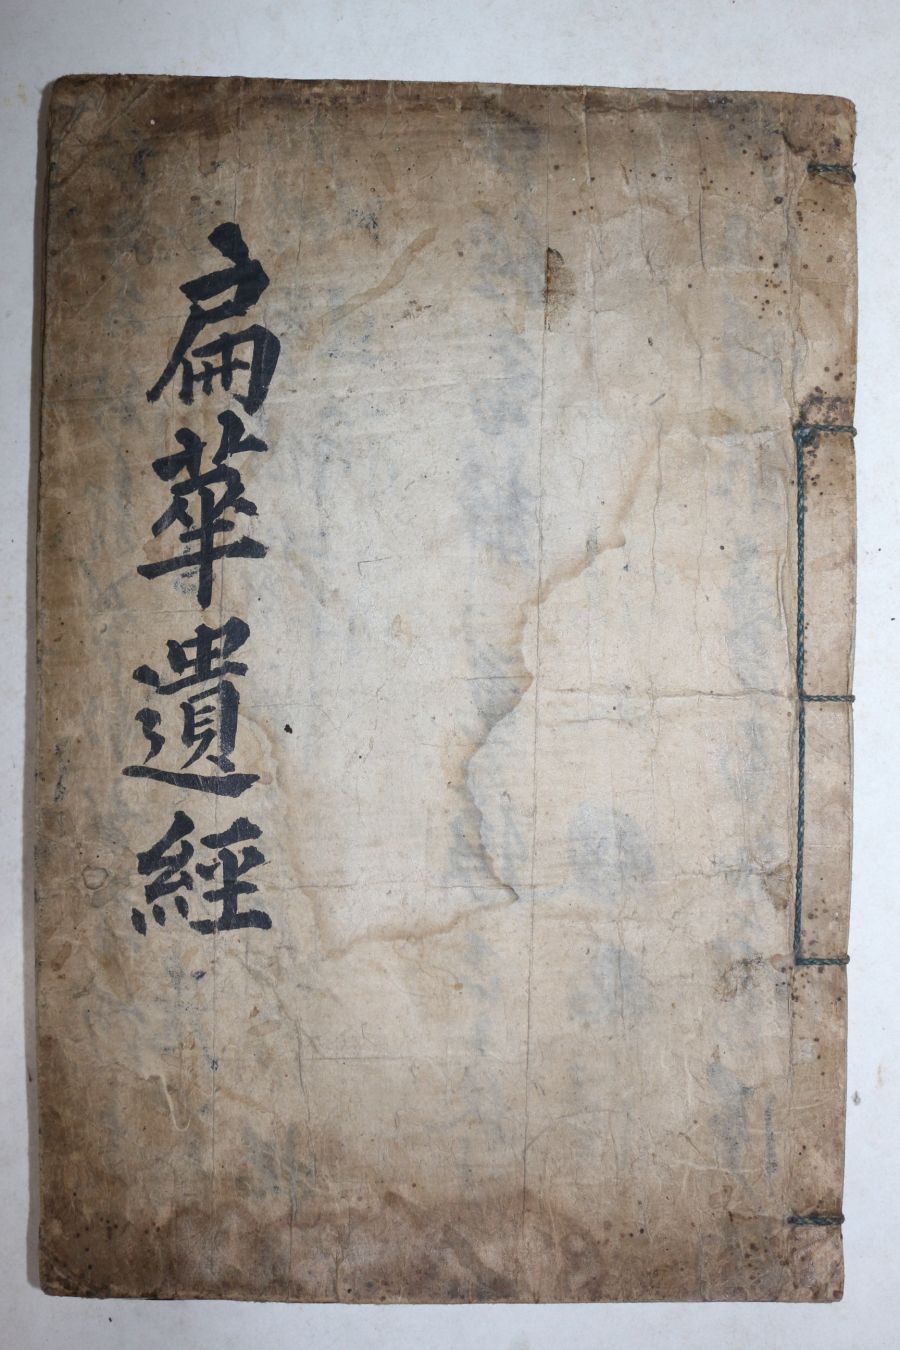 扁華遺經